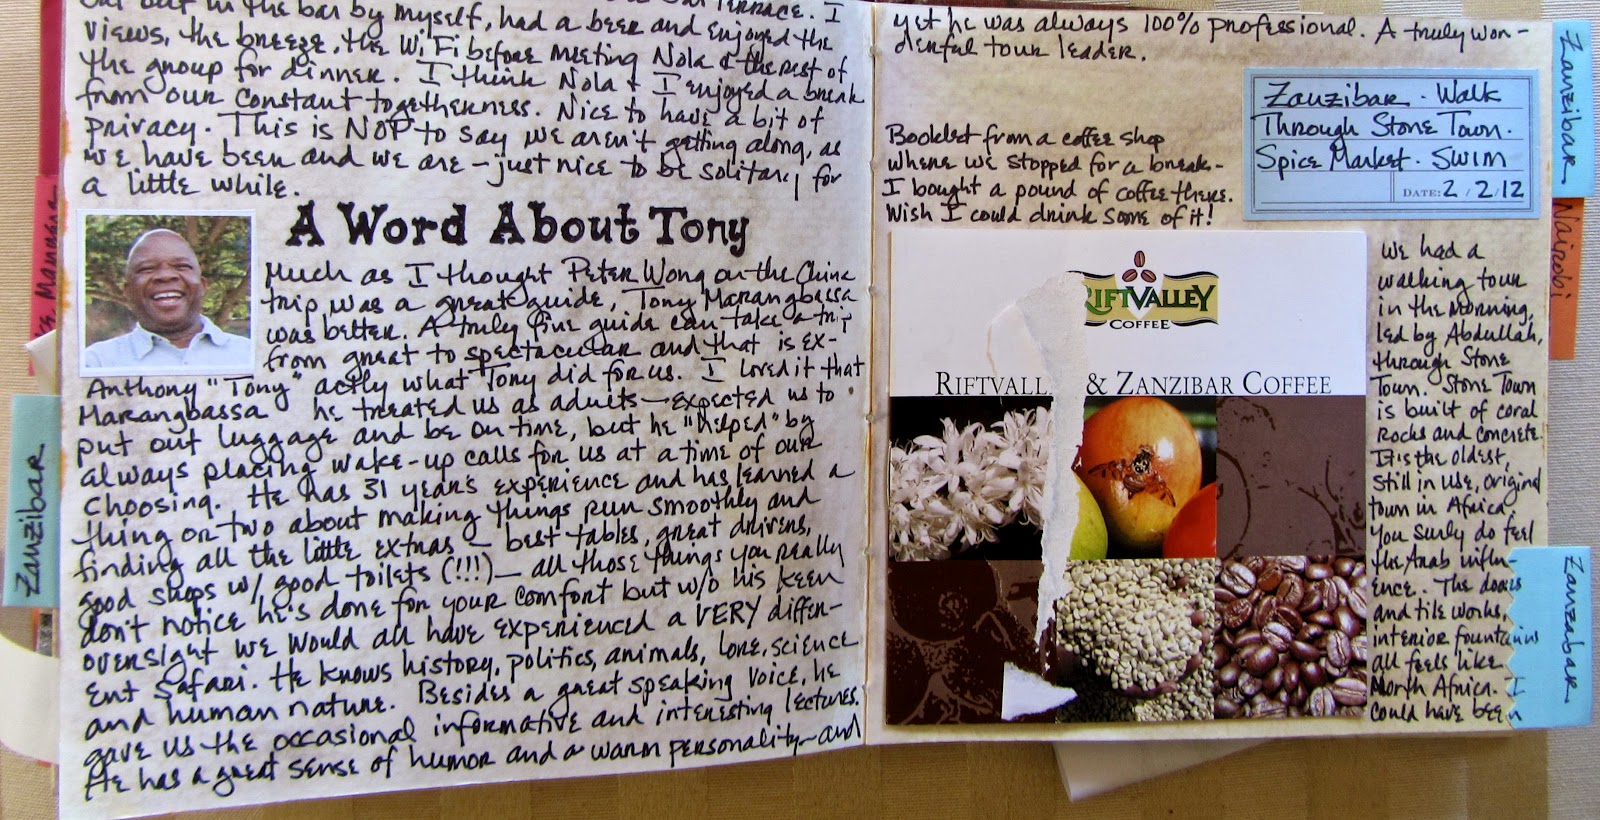 out in the bar by myself, had a beer and enjoyed the
views, the breeze, the WiFi before meeting Nola & the rest of
the group for dinner. I think Nola & I enjoyed a break
from our constant togetherness. Nice to have a bit of
privacy. This is NOT to say we aren't getting along, as
we have been and we are – just nice to be solitary for
a little while.
A Word About Tony
Much as I thought Peter Wong on the China
trip was a great guide, Tony Marangbassa
was better. A truly fine guide can take a trip
from great to spectacular and that is ex-
Anthony "Tony" actly what Tony did for us. I loved it that
Marangbassa he treated us as adults – expected us to
put out luggage and be on time, but he "helped" by
always placing wake-up calls for us at a time of our
choosing. He has 31 years experience and has learned a
thing or two about making things run smoothly and
finding all the little extras – best tables, great drivers,
good shops w/ good toilets (!!!) – all those things you really
don't notice he's done for your comfort but w/o his keen
oversight we would all have experienced a VERY differ-
ent Safari. He knows history, politics, animals, lore, science
and human nature. Besides a great speaking voice, he
gave us the occasional informative and interesting lectures.
He has a great sense of humor and a warm personality – and
Zanzibar
yet he was always 100% professional. A truly won-
derful tour leader.
Zanzibar · Walk
Through Stone Town.
Spice Market · Swim
DATE: 2/2/12
Booklet from a coffee shop
where we stopped for a break –
I bought a pound of coffee there.
Wish I could drink some of it!
RIFTVALLEY
COFFEE
RIFTVALL & ZANZIBAR COFFEE
We had a
walking tour
in the morning,
led by Abdullah,
through Stone
Town. Stone Town
is built of coral
rocks and concrete.
It is the oldest,
still in use, original
town in Africa.
You surly do feel
the Arab influ-
ence. The doors
and tile works,
interior fountains
all feels like
North Africa. I
could have been
Zanzibar
Nairobi
Zanzabar